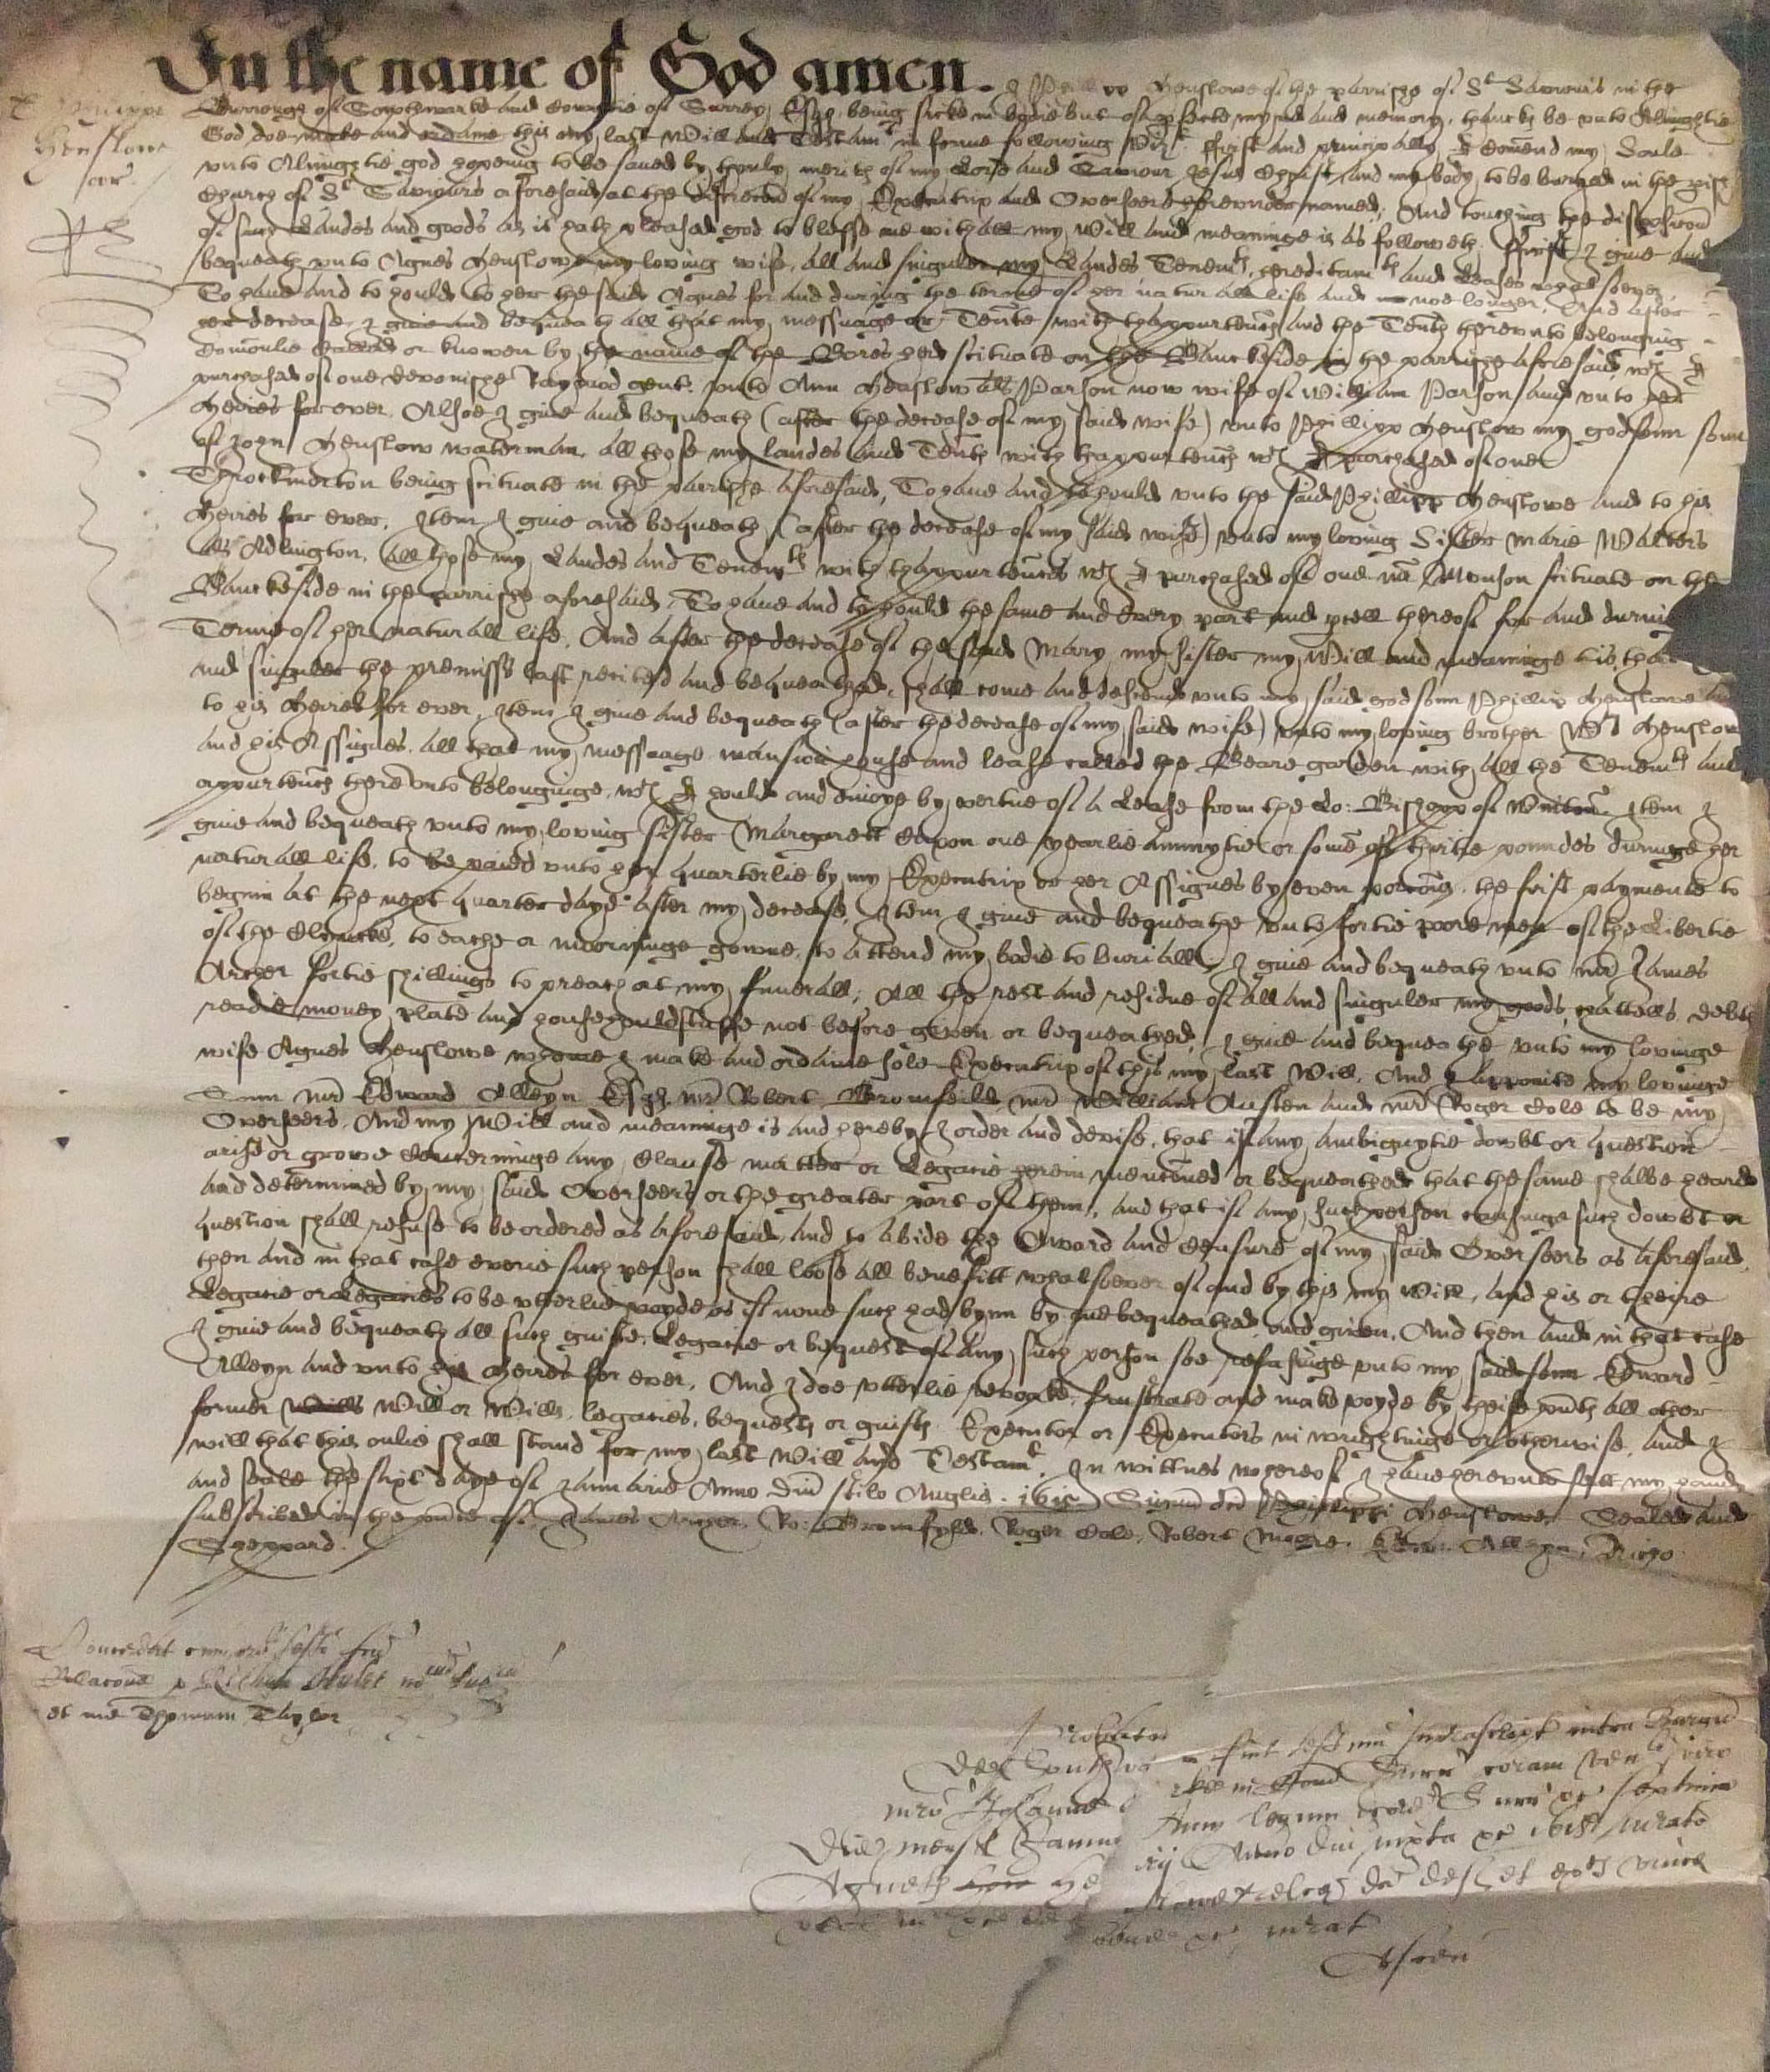 In the name of God amen. I Phillipp Henslowe of the parrishe of St Saviours in the
Burroughe of Sowthwarke and Countie of Surrey Esqr. being sicke in bodie but of pfecte mynd and memory, thanckes be unto Almightie
Henslowe
God doe make and ordaine this my last Will and Testamt in forme following Vizt. First and principally I comend my Soule
unto Almightie god hopeing to be saved by thonly meritts of my Lord and Saviour Jesus Christ and my body to be buryed in the pish
Church of St Saviours aforesaid at the discrecon of my Executrix and Overseers hereunder named; And touching the disposicon
of such Landes and goods as it hath pleased god to blesse me withall my Will and meaninge is as followeth. First I give and
bequeath unto Agnes Henslowe my loving wife, all and singuler my Landes Tenemts, hereditamts and Leases whatsoever
To have and to hould to her the said Agnes for and during the terme of her naturall life and noe longer, And after
her decease I give and bequeath all that my messuage or Tente with thappurtencs and the Tents thereunto belonging
comonlie called or knowen by the name of the Bores hed scituate on the Banckside in the parrishe aforesaid wch I
purchased of one Devonishe Raymod gent. unto Ann Henslow als Parson now wife of William Parson and unto her
Heires for ever. Alsoe I give and bequeath (after the decease of my said wife) unto Phillipp Henslow my godsonn sonn
of John Henslow waterman, all those my landes and Tents with thappurtencs wch I purchased of one
Throckmorton being scituate in the parrishe aforesaid, To have and to hould unto the said Phillipp Henslowe and to his
Heires for ever. Item I give and bequeath (after the decease of my said wife) unto my loving Sister Marie Walters
als Adlington, all those my Landes and Tenemts with thappurtencs wch I purchased of one mr Monson scituate on the
Banckeside in the parrishe aforesaid, To have and to hould the same and every part and pcell thereof for and during
Terme of her naturall life. And after the decease of the said Mary my sister my Will and meaninge is that
and singuler the premisses last recited and bequeathed, shall come and descend unto my said godsonn Phillip Henslowe and
to his Heires for ever. Item I give and bequeath (after the decease of my said wife) unto my loving brother Wm Henslow
and his Assignes, all that my messuage mansion house and lease called the Beare garden with all the Tenemts and
appurtencs thereunto belonginge, wch I hould and enioye by vertue of a Lease from the Lo: Bishopp of Winton. Item I
give and bequeath unto my loving sister Margarett Cuxon one yearlie annuytie or some of thirtie poundes duringe her
naturall life, to be paied unto her quarterlie by my Executrix or her Assignes by even porcons, the first paymente to
beginn at the next quarter daye after my decease, Item I give and bequeathe unto fortie pore men of the Libertie
of the Clyncke, to eache a mourninge gowne, to attend my bodie to buriall. I give and bequeath unto mr James
Archer fortie shillings to preach at my funerall; All the rest and residue of all and singuler my goods, cattells, debts
readie money, plate and househouldstuffe not before given or bequeathed, I give and bequeathe unto my lovinge
wife Agnes Henslowe whome I make and ordaine sole Executrix of this my last Will. And I appointe my lovinge
Sonn mr Edward Alleyn Esqr, mr Robert Bromfeild, mr William Austen and mr Roger Cole to be my
Overseers. And my Will and meaninge is and hereby I order and devise, that if any ambiguytie dowbt or question
arise or growe concerninge any Clause matter or Legacie herein menconed or bequeathed that the same shalbe heard
and determined by my said Overseers or the greater part of them, and that if any such person causinge such dowbt or
question shall refuse to be ordered as aforesaid, and to abide the Award and Censure of my said Overseers as aforesaid,
then and in that case everie such person shall loose all benefitt whatsoever of and by this my Will, and his or theire
Legacie or Legacies to be utterlie voyde as if none such had bynn by me bequeathed and given. And then and in that case
I give and bequeath all such guifte, Legacie or bequest of any such person soe refusinge unto my said sonn Edward
Alleyn and unto his Heires for ever. And I doe utterlie revoake, frustrate and make voyde by theise pnts all other
former Wills Will or Wills, legacies, bequests or guifts, Executor or Executors in wrightinge or otherwise, and I
will that this onlie shall stand for my last Will and Testamt. In wittnes whereof I have hereunto sett my hand
and seale the sixt daye of Januarie Anno Dni stilo Anglie. 1615 Signu dci Phillippi Henslowe. Sealed and
subscribed in the pnce of James Archer, Ro: Bromfyld, Roger Cole, Robert Moore, Edw: Alleyn,
Sheppard.
et me Thomam Taylor